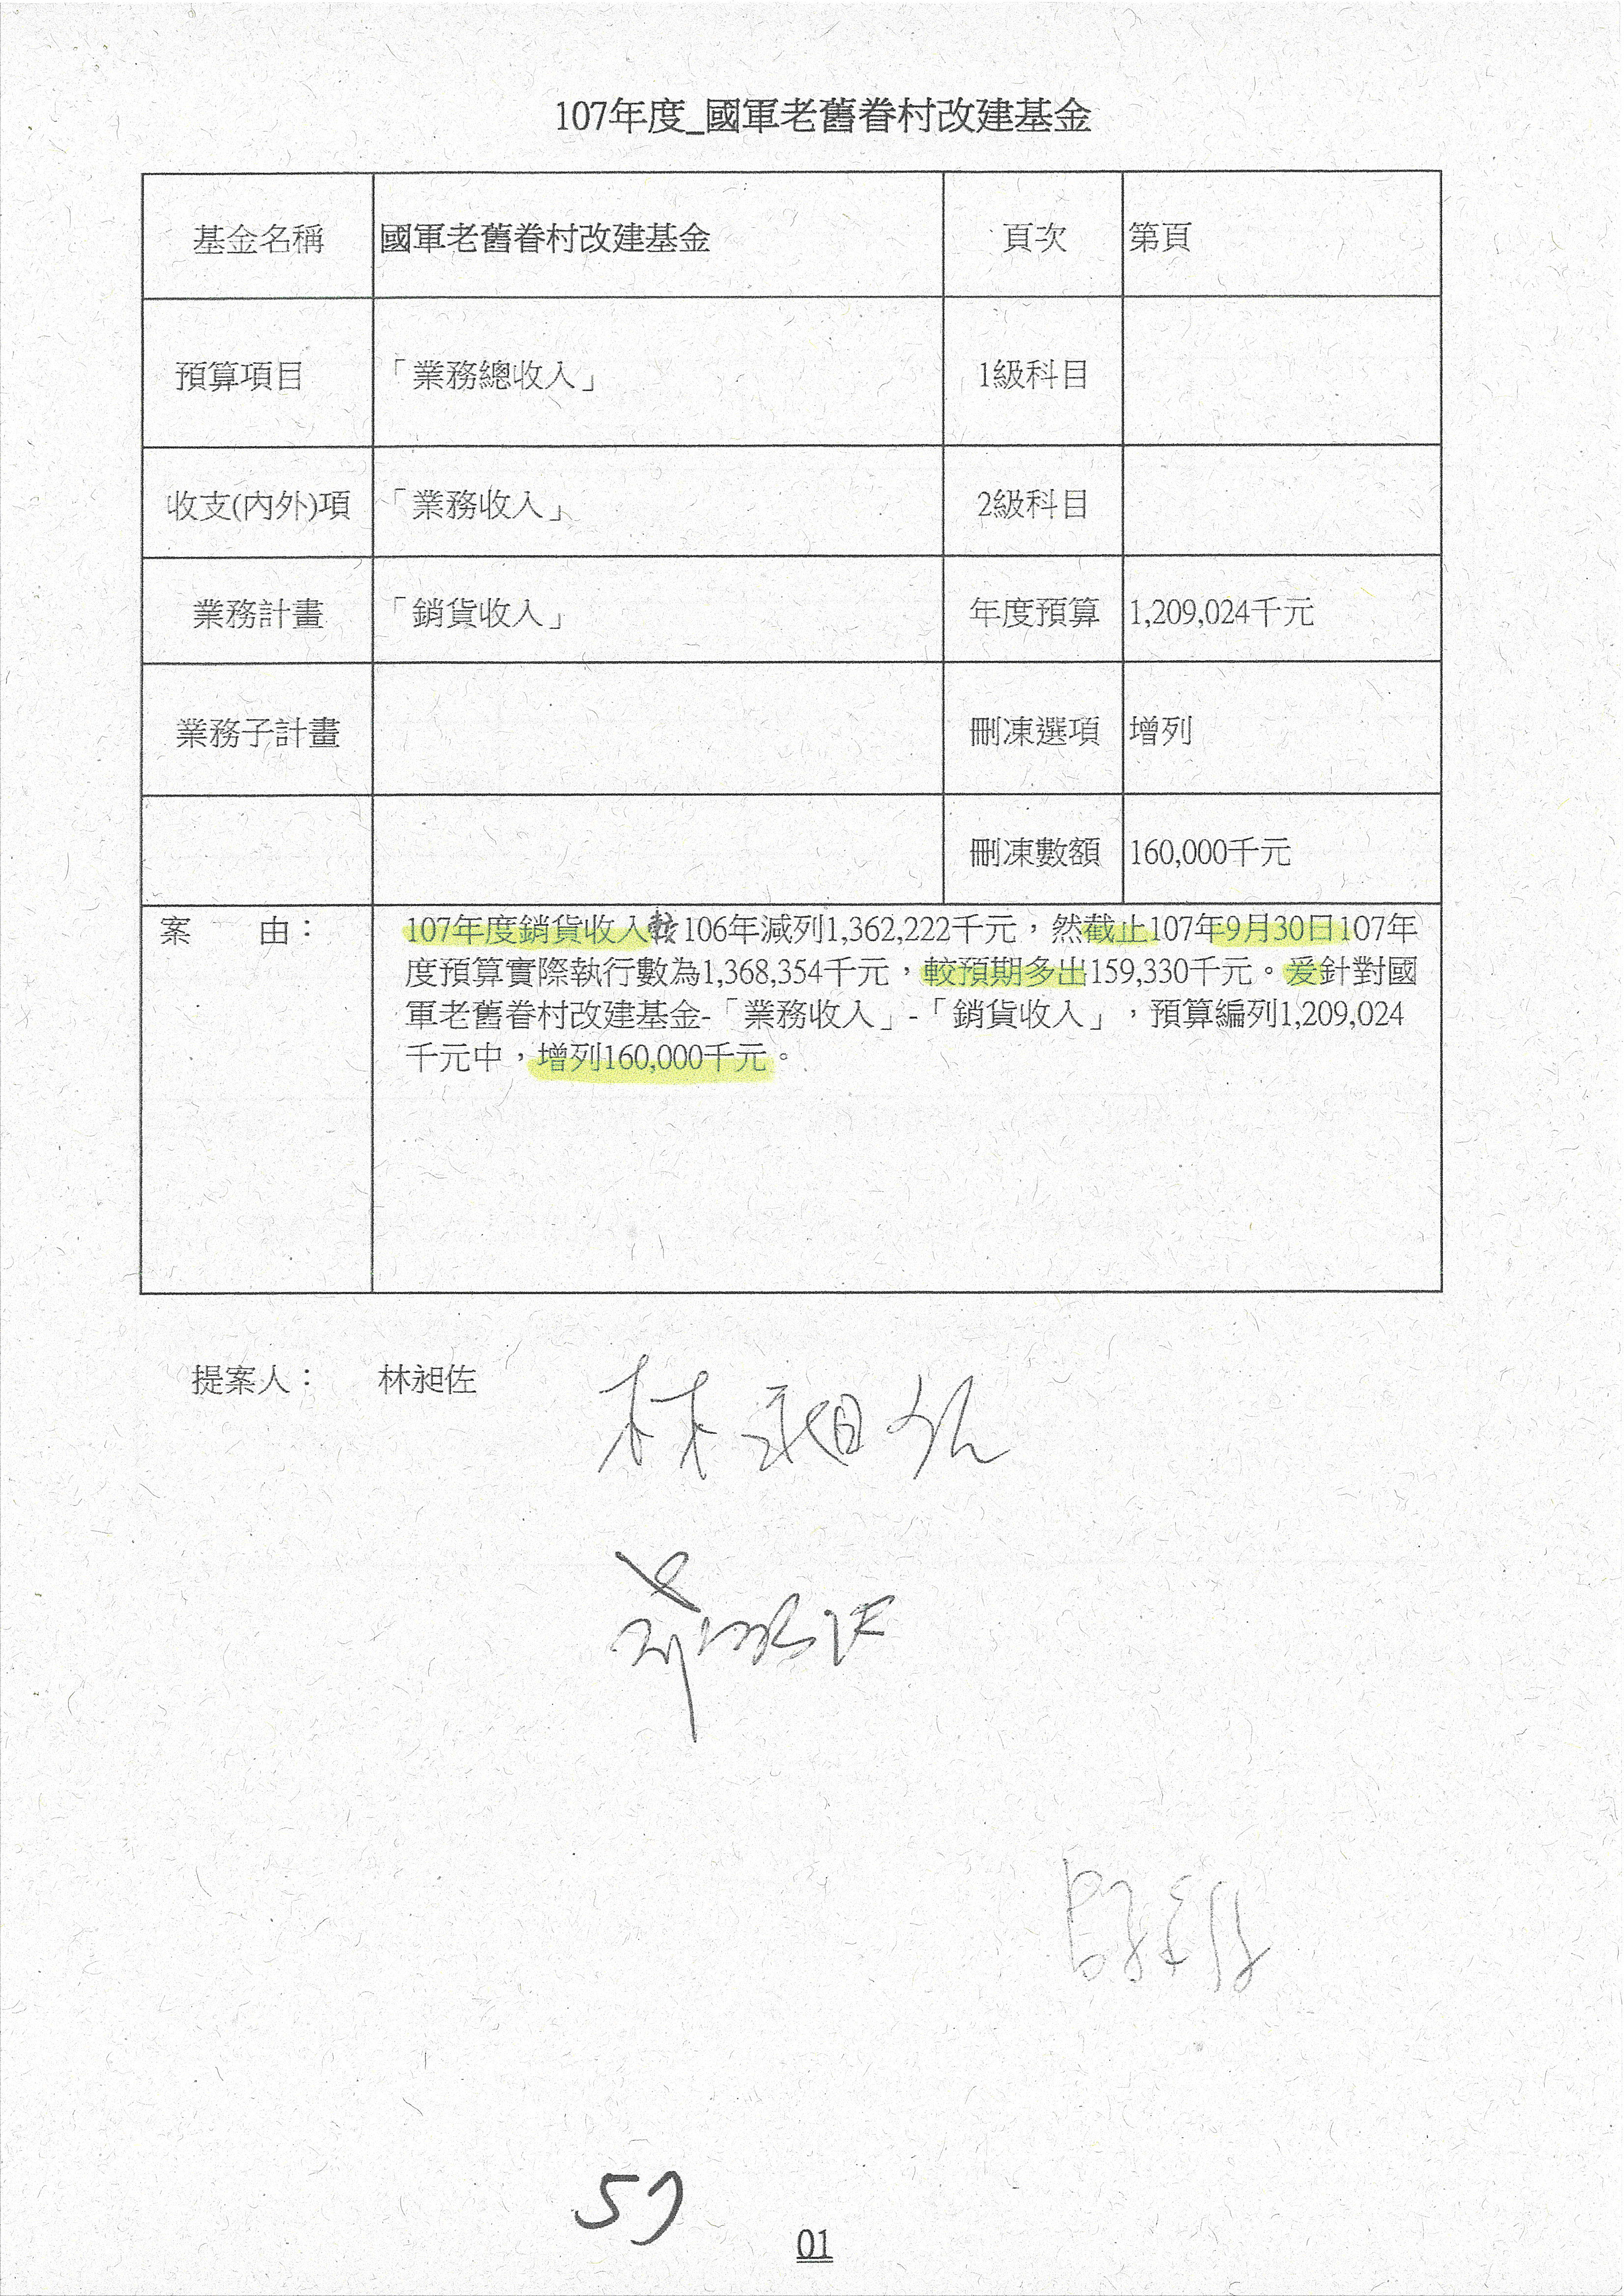 107年度_國軍老舊眷村改建基金
基金名稱 國軍老舊眷村改建基金 頁次 第頁
預算項目 「業務總收入」 1級科目
收支(內外)項 「業務收入」 2級科目
業務計畫 「銷貨收入」 年度預算 1,209,024千元
業務子計畫 刪凍選項 增列
刪凍數額 160,000千元
案 由： 107年度銷貨收入較106年減列1,362,222千元，然截止107年9月30日107年
度預算實際執行數為1,368,354千元，較預期多出159,330千元。爰針對國
軍老舊眷村改建基金-「業務收入」-「銷貨收入」，預算編列1,209,024
千元中，增列160,000千元。
提案人： 林昶佐
林昶佐
57
01